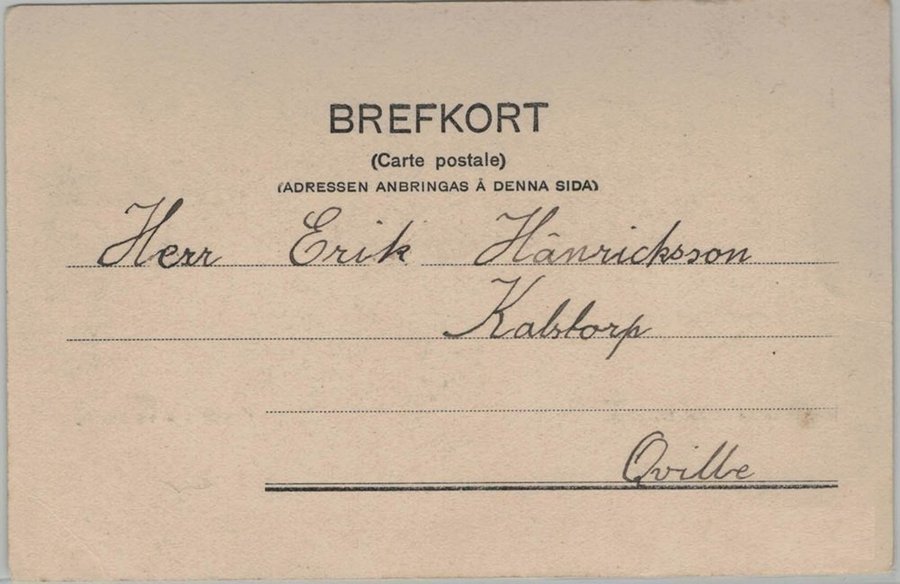 BREFKORT
(Carte postale)
(ADRESSEN ANBRINGAS Å DENNA SIDA)
Herr Erik Hänricksson
Kalstorp
Qville